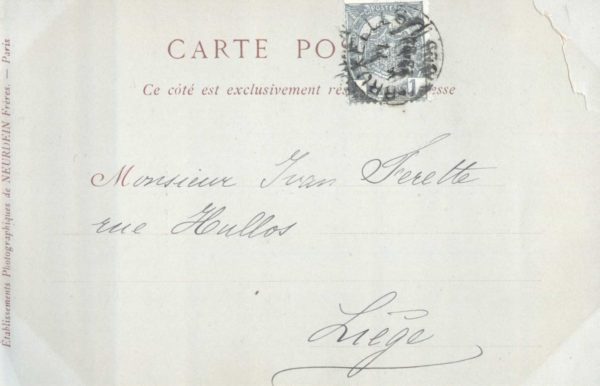 CARTE PO
Ce côté est exclusivement rés esse
POSTES
BRUXELLES
1
Monsieur Ivan Ferette
rue Hullos
Liége
Établissements Photographiques de NEURDEIN Frères. — Paris